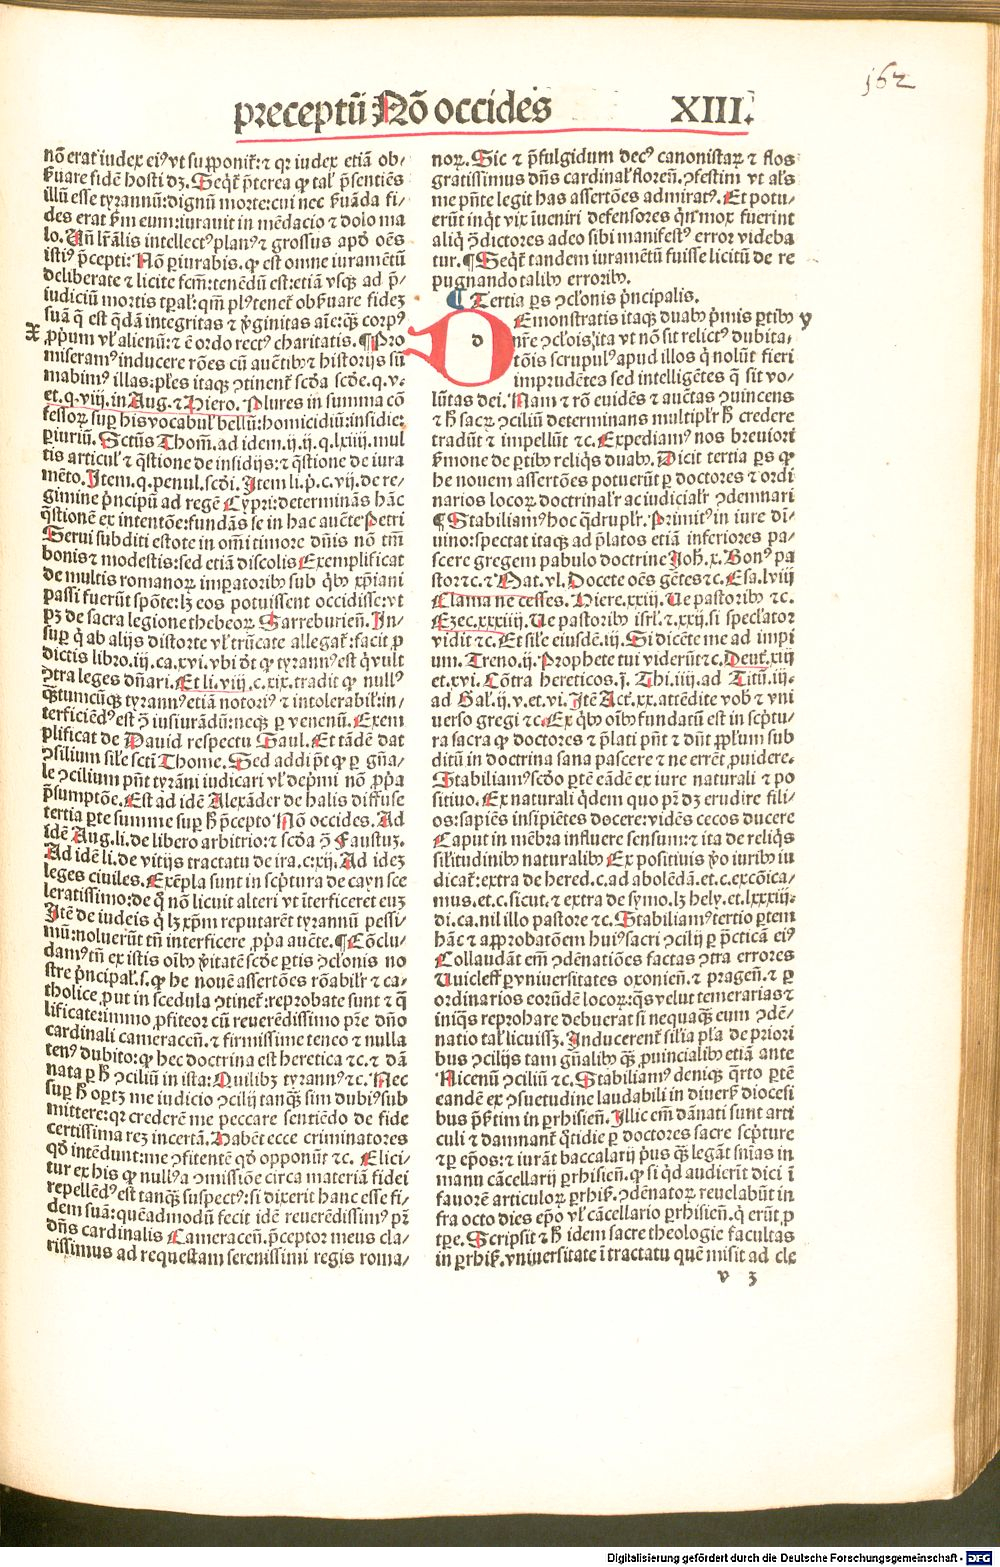 162
preceptū Nō occides XIII.
nō erat iudex eiꝰ vt supponit̄: ⁊ qꝛ iudex etiā ob⸗
ẜuare fidē hosti dꝫ. Seqt̄ p̄terea ꝙ tal̓ p̄sentiēs
illū esse tyrannū: dignū morte: cui nec ẜuāda fi⸗
des erat ẜm eum: iurauit in mēdacio ⁊ dolo ma
lo. Un̄ l̄r̄alis intellectꝰ planꝰ ⁊ grossus apd̓ oēs
istiꝰ p̄cepti: Nō ꝑiurabis. ꝙ est omne iuramētū
deliberate ⁊ licite fcm̄: tenēdū est: etiā vsqꝫ ad p̄⸗
iudiciū moꝛtis tp̄al̓: qm̄ plꝰ tenet̄ obẜuare fideꝫ
suā q̄ est q̄dā integritas ⁊ v̓ginitas aīe: qꝫ̄ coꝛpꝰ
ꝓpꝛiū vl̓ alienū: ⁊ ē oꝛdo rectꝰ charitatis. ¶Pꝛo
miseramꝰ inducere rōes cū auc̄tibꝰ ⁊ histoꝛijs sū
mabimꝰ illas: ples itaqꝫ ꝯtinent̄ scd̓a scd̓e. q. v.
et. q. viij. in Aug. ⁊ Hiero. Plures in summa cō
fessoꝝ suꝑ his vocabul̓ bellū: homicidiū: insidie:
ꝑiuriū. Sctūs Thom̄. ad idem. ij. ij. q. lxiij. mul
tis articul̓ ⁊ q̄stione de insidijs: ⁊ q̄stione de iura
mēto. Item. q. penul. scd̓i. Item li. p̄. c. vij. de re⸗
gimine p̄ncipū ad regē Cypꝛi: determinās hāc
q̄stionē ex intentōe: fundās se in hac auc̄te Petri
Serui subditi estote in om̄i timoꝛe dn̄is nō tm̄
bonis ⁊ modestis: sed etiā discolis Exemplificat
de multis romanoꝝ imꝑatoꝛibꝰ sub q̄bꝰ xp̄iani
passi fuerūt spōte: lꝫ eos potuissent occidisse: vt
pꝫ de sacra legione thebeoꝝ. Sarreburien̄. In⸗
suꝑ q̓ ab alijs distoꝛte vl̓ trūcate allegat̄: facit ꝓ
dictis libꝛo. iij. ca. xvi. vbi dt̄ ꝙ tyrannꝰ est q̓ vult
ꝯtra leges dn̄ari. Et li. viij. c. xix. tradit ꝙ nullꝰ
qꝫ̄tumcūqꝫ tyrannꝰ etiā notoꝛiꝰ ⁊ intolerabil̓: in⸗
terficiēdꝰ est ꝯ̄ iusiurādū: neqꝫ ꝑ venenū. Exem
plificat de Dauid respectu Saul. Et tādē dat
ꝯsilium sil̓e scti Thome. Sed addi pt̄ ꝙ ꝑ gn̄a⸗
le ꝯcilium pn̄t tyrāni iudicari vl̓ dep̄mi nō ꝓpꝛia
p̄sumptōe. Est ad idē Alexāder de halis diffuse
tertia parte summe suꝑ ħ p̄cepto Nō occides. Ad
idē Aug. li. de libero arbitrio: ⁊ scd̓a ꝯ̄ Faustuꝫ.
Ad idē li. de vitijs tractatu de ira. c. xij. Ad ideꝫ
leges ciuiles. Exēpla sunt in scp̄tura de cayn sce
leratissimo: de q̓ nō licuit alteri vt īterficeret euꝫ
Itē de iudeis q̓ lꝫ xp̄m reputarēt tyrannū pessi⸗
mū: noluerūt tn̄ interficere ꝓpꝛia auc̄te. ¶Cōclu⸗
damꝰ tn̄ ex istis oībꝰ v̓itatē scd̓e ꝑtis ꝯclonis no
stre p̄ncipal̓. s. ꝙ he nouē assertōes rōabil̓r ⁊ ca⸗
tholice, ꝓut in scedula ꝯtinet̄: repꝛobate sunt ⁊ q̄
lificate: immo ꝓfiteoꝛ cū reuerēdissimo pꝛ̄e dn̄o
cardinali cameraceñ. ⁊ firmissime teneo ⁊ nulla
tenꝰ dubito: ꝙ hec doctrina est heretica ⁊c. ⁊ dā
nata ꝑ ħ ꝯciliū in ista: Quilibꝫ tyrannꝰ ⁊c. Nec
suꝑ ħ opꝛtꝫ me iudicio ꝯcilij tanqꝫ̄ sim dubiꝰ sub
mittere: qꝛ crederē me peccare sentiēdo de fide
certissima reꝫ incertā. Habēt ecce criminatoꝛes
qd̓ intēdunt: me ꝯfitentē qd̓ opponūt ⁊c. Elici⸗
tur ex his ꝙ nullꝰa ꝯmissiōe circa materiā fidei
repellēdꝰ est tanqꝫ̄ suspectꝰ: si dixerit hanc esse fi⸗
dem suā: quēadmodū fecit idē reuerēdissimꝰ pꝛ̄
dn̄s cardinalis Cameraceñ. p̄ceptoꝛ meus cla⸗
rissimus ad requestam serenissimi regis roma⸗
X
noꝝ. Sic ⁊ p̄fulgidum decꝰ canonistaꝝ ⁊ flos
gratissimus dn̄s cardinal̓ floren̄. ꝯfestim vt al̓s
me pn̄te legit has assertōes admiratꝰ. Et potu⸗
erūt inq̄t vix iueniri defensoꝛes q̓n mox fuerint
aliq̓ p̄dictoꝛes adeo sibi manifestꝰ erroꝛ videba
tur. ¶Seqt̄ tandem iuramētū fuisse licitū de re
pugnando talibꝰ erroꝛibꝰ.
¶ Tertia ꝑs ꝯclonis p̄ncipalis.
DEmonstratis itaqꝫ duabꝰ p̓mis ꝑtibꝰ
nr̄e ꝯclōis: ita vt nō sit relictꝰ dubita⸗
tōis scrupulꝰ apud illos q̓ nolūt fieri
impꝛudētes sed intelligētes q̄ sit vo⸗
lūtas dei. Nam ⁊ rō euidēs ⁊ auc̄tas ꝯuincens
⁊ ħ sacꝝ ꝯciliū determinans multipl̓r ħ credere
tradūt ⁊ impellūt ⁊c. Expediamꝰ nos bꝛeuioꝛi
ẜmone de ꝑtibꝰ reliq̓s duabꝰ. Dicit tertia ꝑs ꝙ
he nouem assertōes potuerūt ꝑ doctoꝛes ⁊ oꝛdi
narios locoꝝ doctrinal̓r ac iudicial̓r ꝯdemnari
¶Stabiliamꝰ hoc q̓drupl̓r. Pꝛimitꝰ in iure di⸗
uino: spectat itaqꝫ ad p̄latos etiā inferioꝛes pa⸗
scere gregem pabulo doctrine Joh̄. x. Bonꝰ pa
stoꝛ ⁊c. ⁊ Mat. vl. Docete oēs gētes ⁊c. Esa. lviij
Clama ne cesses. Hiere. xxiij. Ue pastoꝛibꝰ ⁊c.
Ezec. xxxiiij. Ue pastoꝛibꝰ isrl̓. ⁊. xxij. si specl̓atoꝛ
vidit ⁊c. Et sil̓e eiusdē. iij. Si dicēte me ad impi
um. Treno. ij. Pꝛophete tui viderūt ⁊c. Deut̄. xiij
et. xvi. Cōtra hereticos. j̄. Thi. iiij. ad Titū. iij.
ad Gal̓. ij. v. et. vi. Itē Act̄. xx. attēdite vob̄ ⁊ vni
uerso gregi ⁊c. Ex q̓bꝰ oībꝰ fundatū est in scp̄tu⸗
ra sacra ꝙ doctoꝛes ⁊ p̄lati pn̄t ⁊ dn̄t ppl̓um sub
ditū in doctrina sana pascere ⁊ ne erret̄ ꝓuidere.
Stabiliamꝰ scd̓o ꝑtē eādē ex iure naturali ⁊ po
sitiuo. Ex naturali q̓dem quo pꝛ̄ dꝫ erudire fili⸗
os: sapiēs insipiētes docere: vidēs cecos ducere
Caput in mēbꝛa influere sensum: ⁊ ita de reliq̓s
sil̓itudinibꝰ naturalibꝰ Ex positiuis v̓o iuribꝰ iu
dicat̄: extra de hered. c. ad abolēdā. et. c. excōica⸗
mus. et. c. sicut. ⁊ extra de symo. lꝫ hely. et. lxxxiij.
di. ca. nil illo pastoꝛe ⁊c. Stabiliamꝰ tertio ꝑtem
hāc ⁊ appꝛobatōem huiꝰ sacri ꝯcilij ꝑ pꝛacticā eiꝰ
Collaudāt em̄ ꝯdēnatiōes factas ꝯtra erroꝛes
Uuicleff ꝑ vniuersitates oxonien̄. ⁊ pꝛagen̄. ⁊ ꝑ
oꝛdinarios eorūdē locoꝝ: qꝫs velut temerarias ⁊
iniq̓s repꝛobare debuerat si nequaqꝫ̄ eum ꝯdē⸗
natio tal̓ licuissꝫ. Inducerent̄ sil̓ia pl̓a de pꝛioꝛi
bus ꝯcilijs tam gn̄alibꝰ qꝫ̄ ꝓuincialibꝰ etiā ante
Nicenū ꝯciliū ⁊c. Stabiliamꝰ deniqꝫ q̄rto ꝑtē
eandē ex ꝯsuetudine laudabili in diuerẜ diocesi
bus p̄ẜtim in ꝑrhisien̄. Illic em̄ dānati sunt arti
culi ⁊ damnant̄ q̓tidie ꝑ doctoꝛes sacre scp̄ture
⁊ ꝑ ep̄os: ⁊ iurāt baccalarij pꝛ̄us qꝫ̄ legāt sn̄ias in
manu cācellarij ꝑrhisien̄. ꝙ si qd̓ audierīt dici ī
fauoꝛē articuloꝝ ꝑrhiẜ. ꝯdēnatoꝝ reuelabūt in
fra octo dies ep̄o vl̓ cācellario ꝑrhisien̄. q̓ erūt ꝓ
tp̄e. Scripsit ⁊ ħ idem sacre theologie facultas
in ꝑrhiẜ. vniuersitate ī tractatu quē misit ad cle
y
v 3
Digitalisierung gefördert durch die Deutsche Forschungsgemeinschaft - DFG